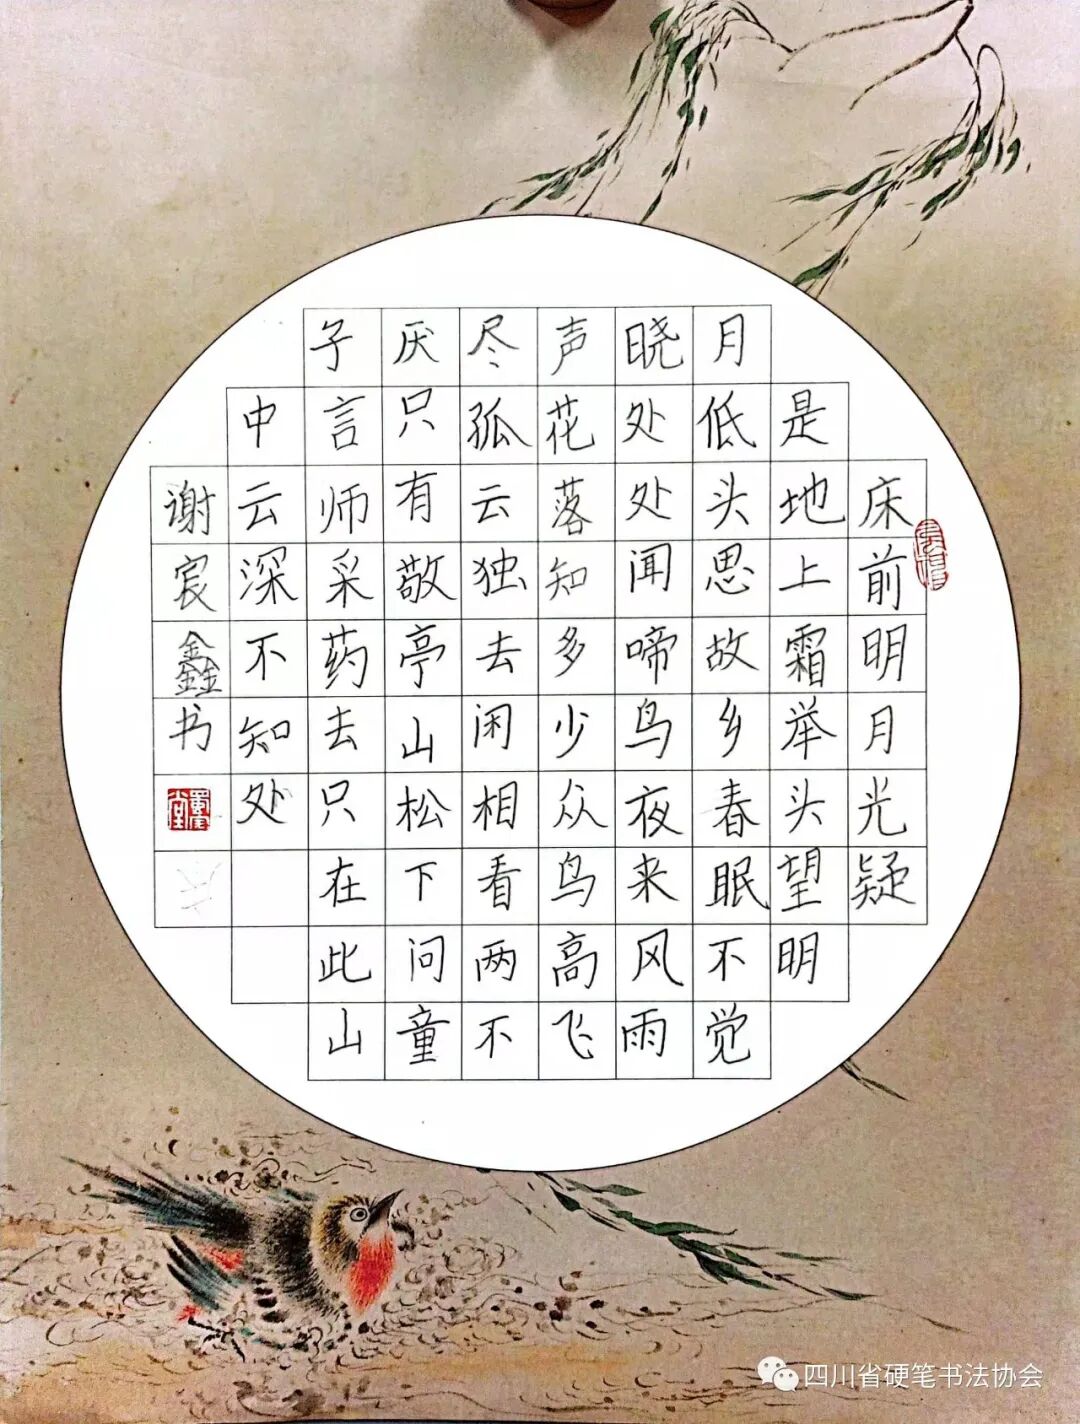 床前明月光疑
是地上霜举头望明
月低头思故乡春眠不觉
晓处处闻啼鸟夜来风雨
声花落知多少众鸟高飞
尽孤云独去闲相看两不
厌只有敬亭山松下问童
子言师采药去只在此山
中云深不知处
谢宸鑫书
四川省硬笔书法协会